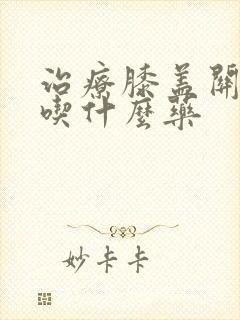 治療膝盖關
喫什麼藥
妙卡卡